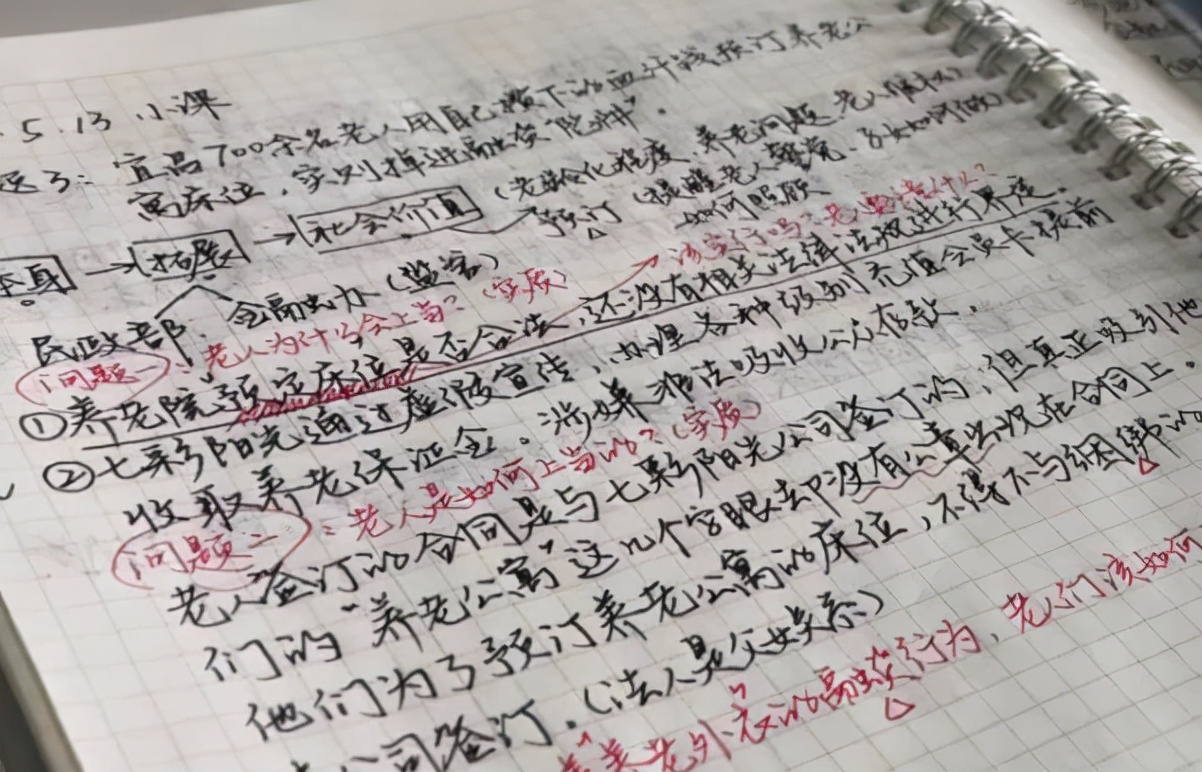 5.13 小课
宜昌700余名老人用自己攒下的血汗钱预订养老公
寓床位,实则掉进融资"陷阱".
本身→拓展→社会价值 (老龄化程度、养老问题、老人
预订 (提醒老人警觉、子女如何做)
如何照顾
民政部 金融办 (监管)
该实行吗?
问题一:老人为什么会上当?(实质)
①养老院预定床位是否合法,还没有相关法律法规进行界定.
②七彩阳光通过虚假宣传,办理各种级别充值会员卡提前
收取养老保证金。涉嫌非法吸收公众存款.
问题二:老人是如何上当的?(实质)
老人签订的合同是与七彩阳光公司签订的,但真正吸引他
们的"养老公寓"这几个字眼却没有公章出现在合同上。
他们为了预订养老公寓的床位,不得不与捆绑的
公司签订.(法人是父女关系)
养老外衣的融资行为,老人们该如何